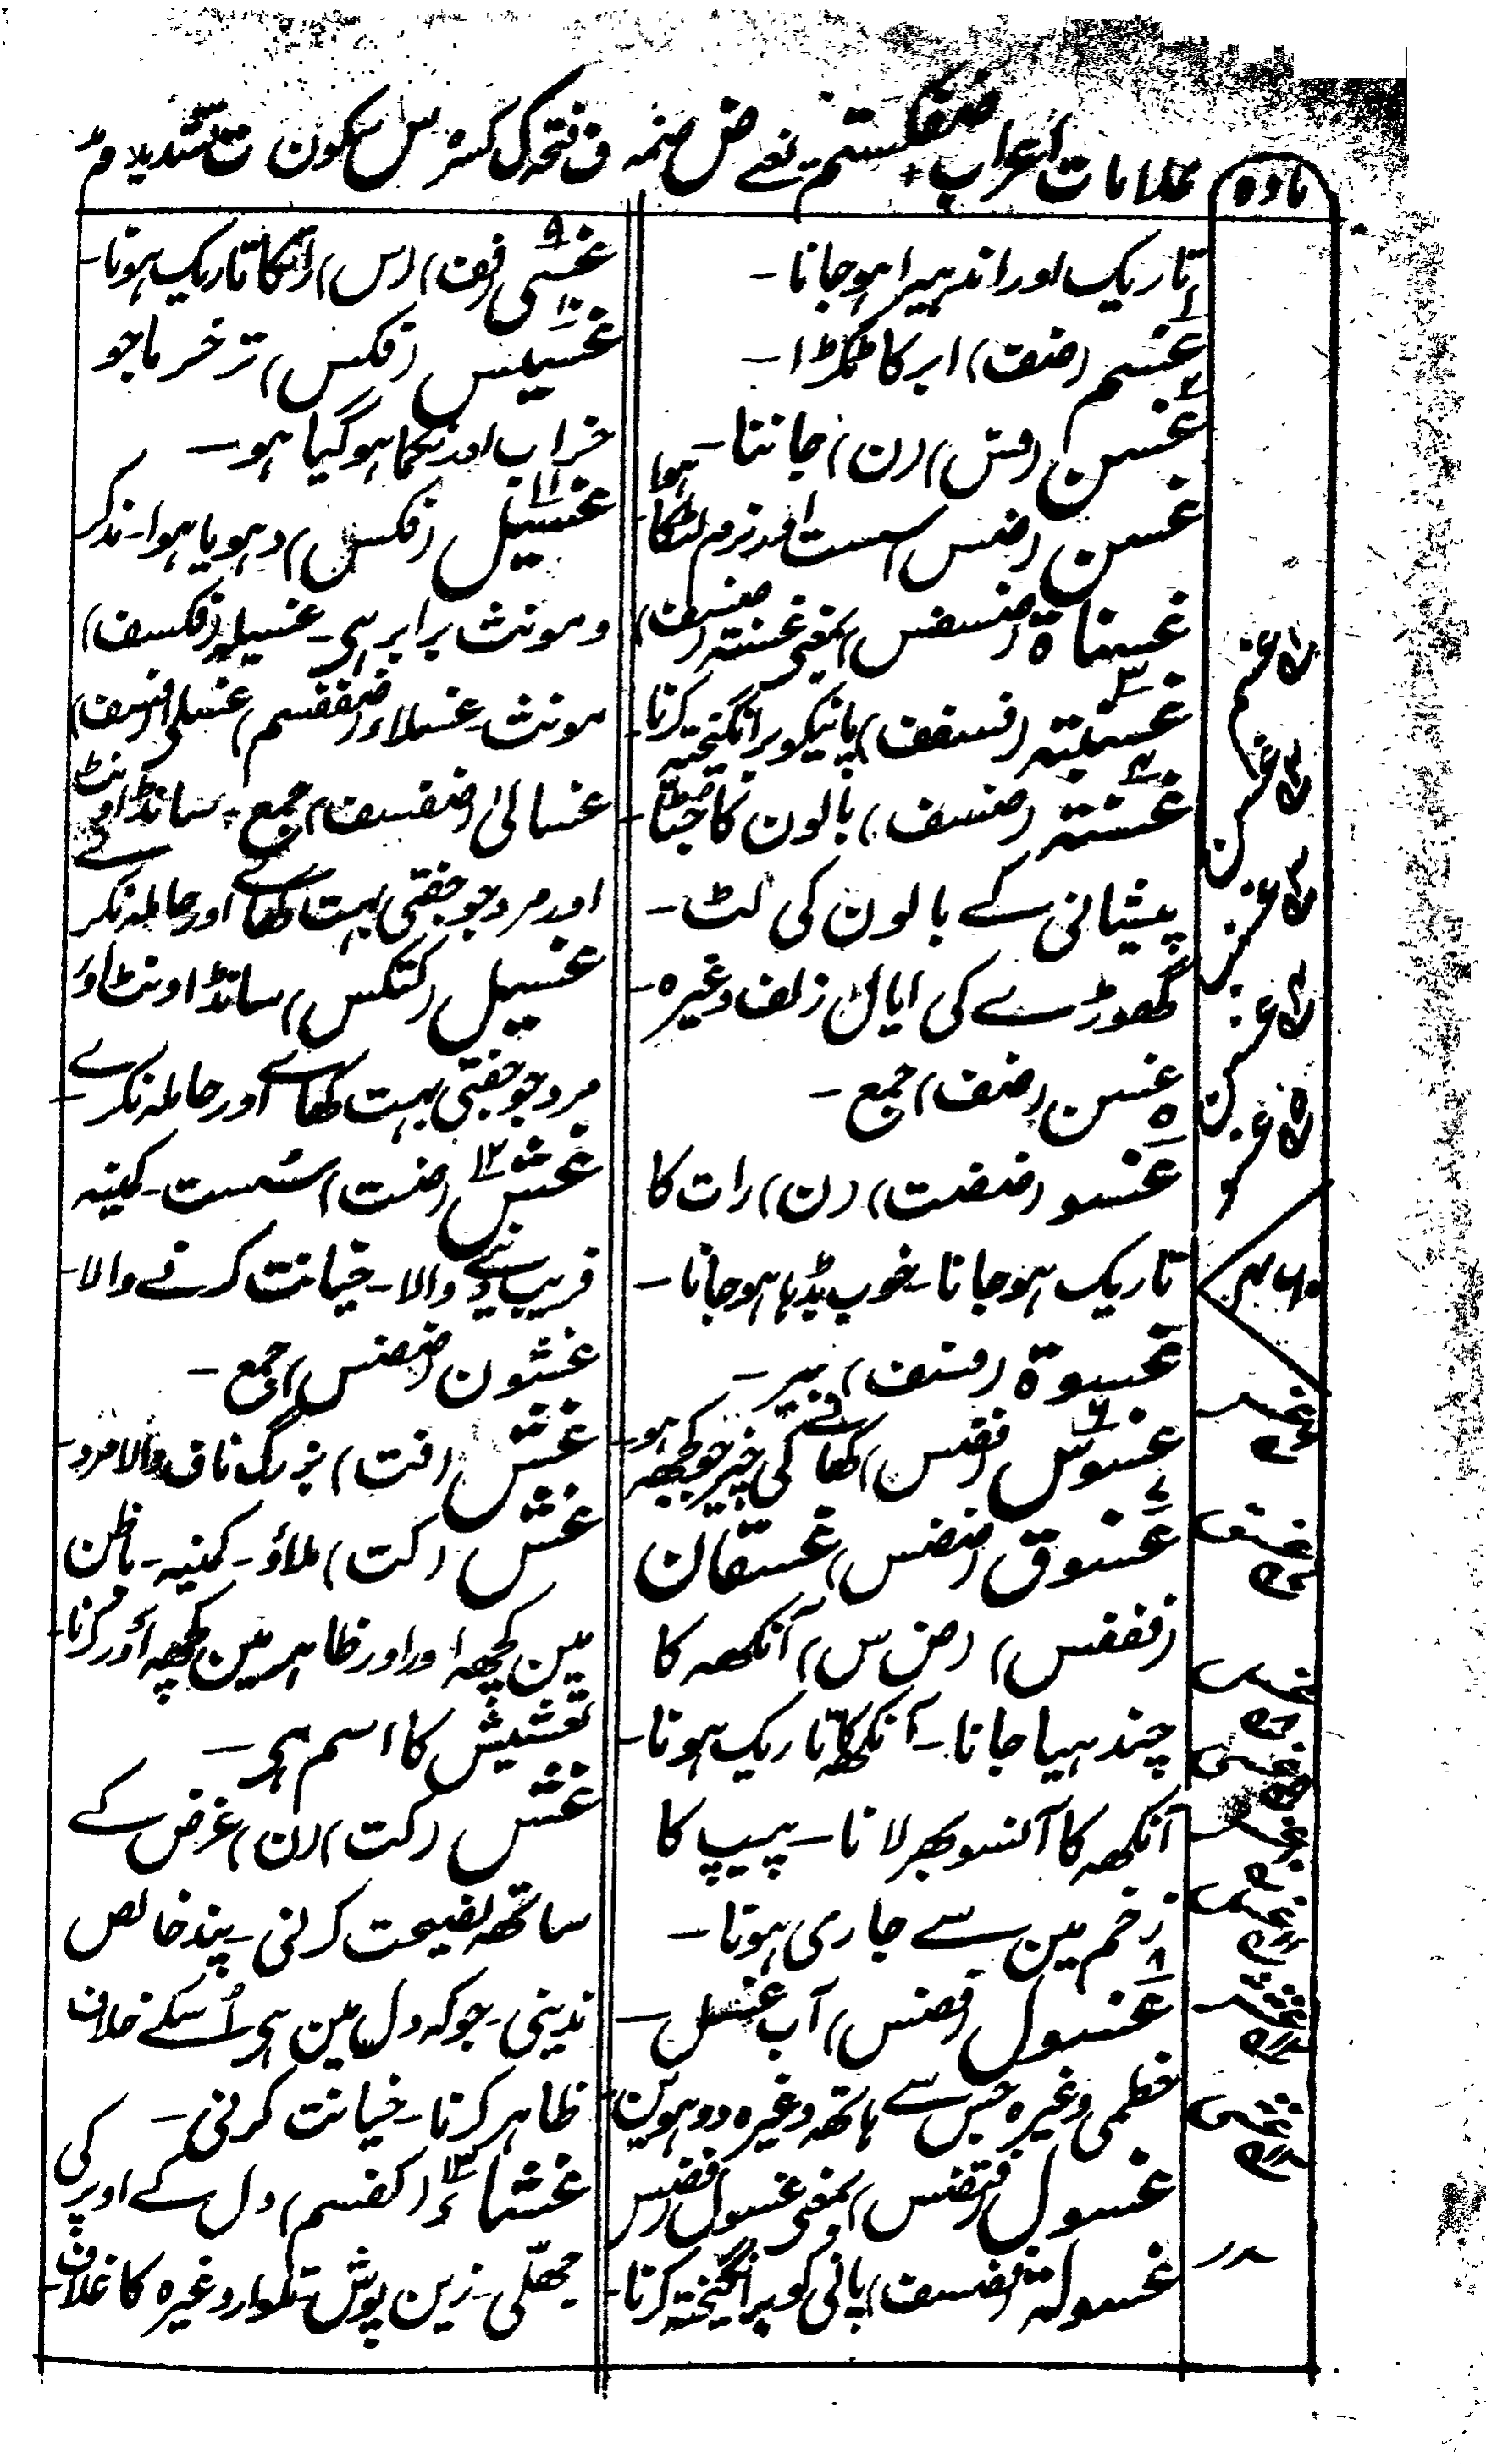 مادہ
علامات اعراب ضفکستم یعنے ض ضمہ ف فتحہ ک کسرہ س سکون ت تشدید م مد
تاریک اور اندہیرا ہوجانا-
غسم (ضف) ابر کا ٹکڑا-
غسن (فس) (ن) جاننا-
غسن (ضس) سست اور نرم لٹکا ہوا
غسناۃ (ضسفس) بمعنی غسنتہ (ضسف)
(فسفف) پانیکو برانگیختہ کرنا-
غسنتہ (ضسف) بالون کا جٹا-
پیشانی کے بالون کی لٹ-
گھوڑے کی ایال زلف وغیرہ-
غسن (ضف) جمع-
غسو (ضضت) (ن) رات کا
تاریک ہوجانا- خوب بڈہا ہوجانا-
غسوۃ (فسف) بیر-
غسوس (فضس) کھانے کی چیز جو کچھہ ہو-
غسوق (ضضس) غسقان
(فففس) (ض س) آنکھہ کا
چندہیا جانا- آنکھکا تاریک ہونا-
آنکھہ کا آنسو بھر لانا- پیپ کا
زخم مین سے جاری ہونا-
غسول (فضس) آب غسل-
خطمی وغیرہ جس سے ہاتھہ وغیرہ دوہوین
غسول (فتضس) بمعنی غسول (فضس
غسولۃ (فضسف) پانی کو برانگیختہ کرنا-
غسی (فف) (س) راتکا تاریک ہونا-
غسیس (فکس) تر خرما جو
خراب اور نکما ہوگیا ہو-
غسیل (فکس) دہویا ہوا- مذکر
و مونث برابر ہی- غسیلہ (فکسف)
مونث- غسلاء (ضففسم) غسلی (فسف)
غسالیٰ (ضفسف) جمع- سانڈ اونٹ
اور مرد جو جفتی بہت کھائے اور حاملہ نکرے
غسیل (کتکس) سانڈ اونٹ اور
مرد جو جفتی بہت کھائے اور حاملہ نکرے-
غش (ضت) سست- کینہ
فریب دینے والا- خیانت کرنے والا-
غشون (ضضس) جمع-
غش (فت) بزرگ ناف والا مرد-
غش (کت) ملاؤ- کینہ- باطن
مین کچھہ اور اور ظاہر مین کچھہ اور کرنا-
تغشیش کا اسم ہی-
غش (کت) (ن) غرض کے
ساتھہ نصیحت کرنی- پند خالص
ندینی- جو کہ دل مین ہی اُسکے خلاف
ظاہر کرنا- خیانت کرنی-
غشاء (کفسم) دل کے اوپر کی
جھلّی- زین پوش- تلوار وغیرہ کا غلاف-